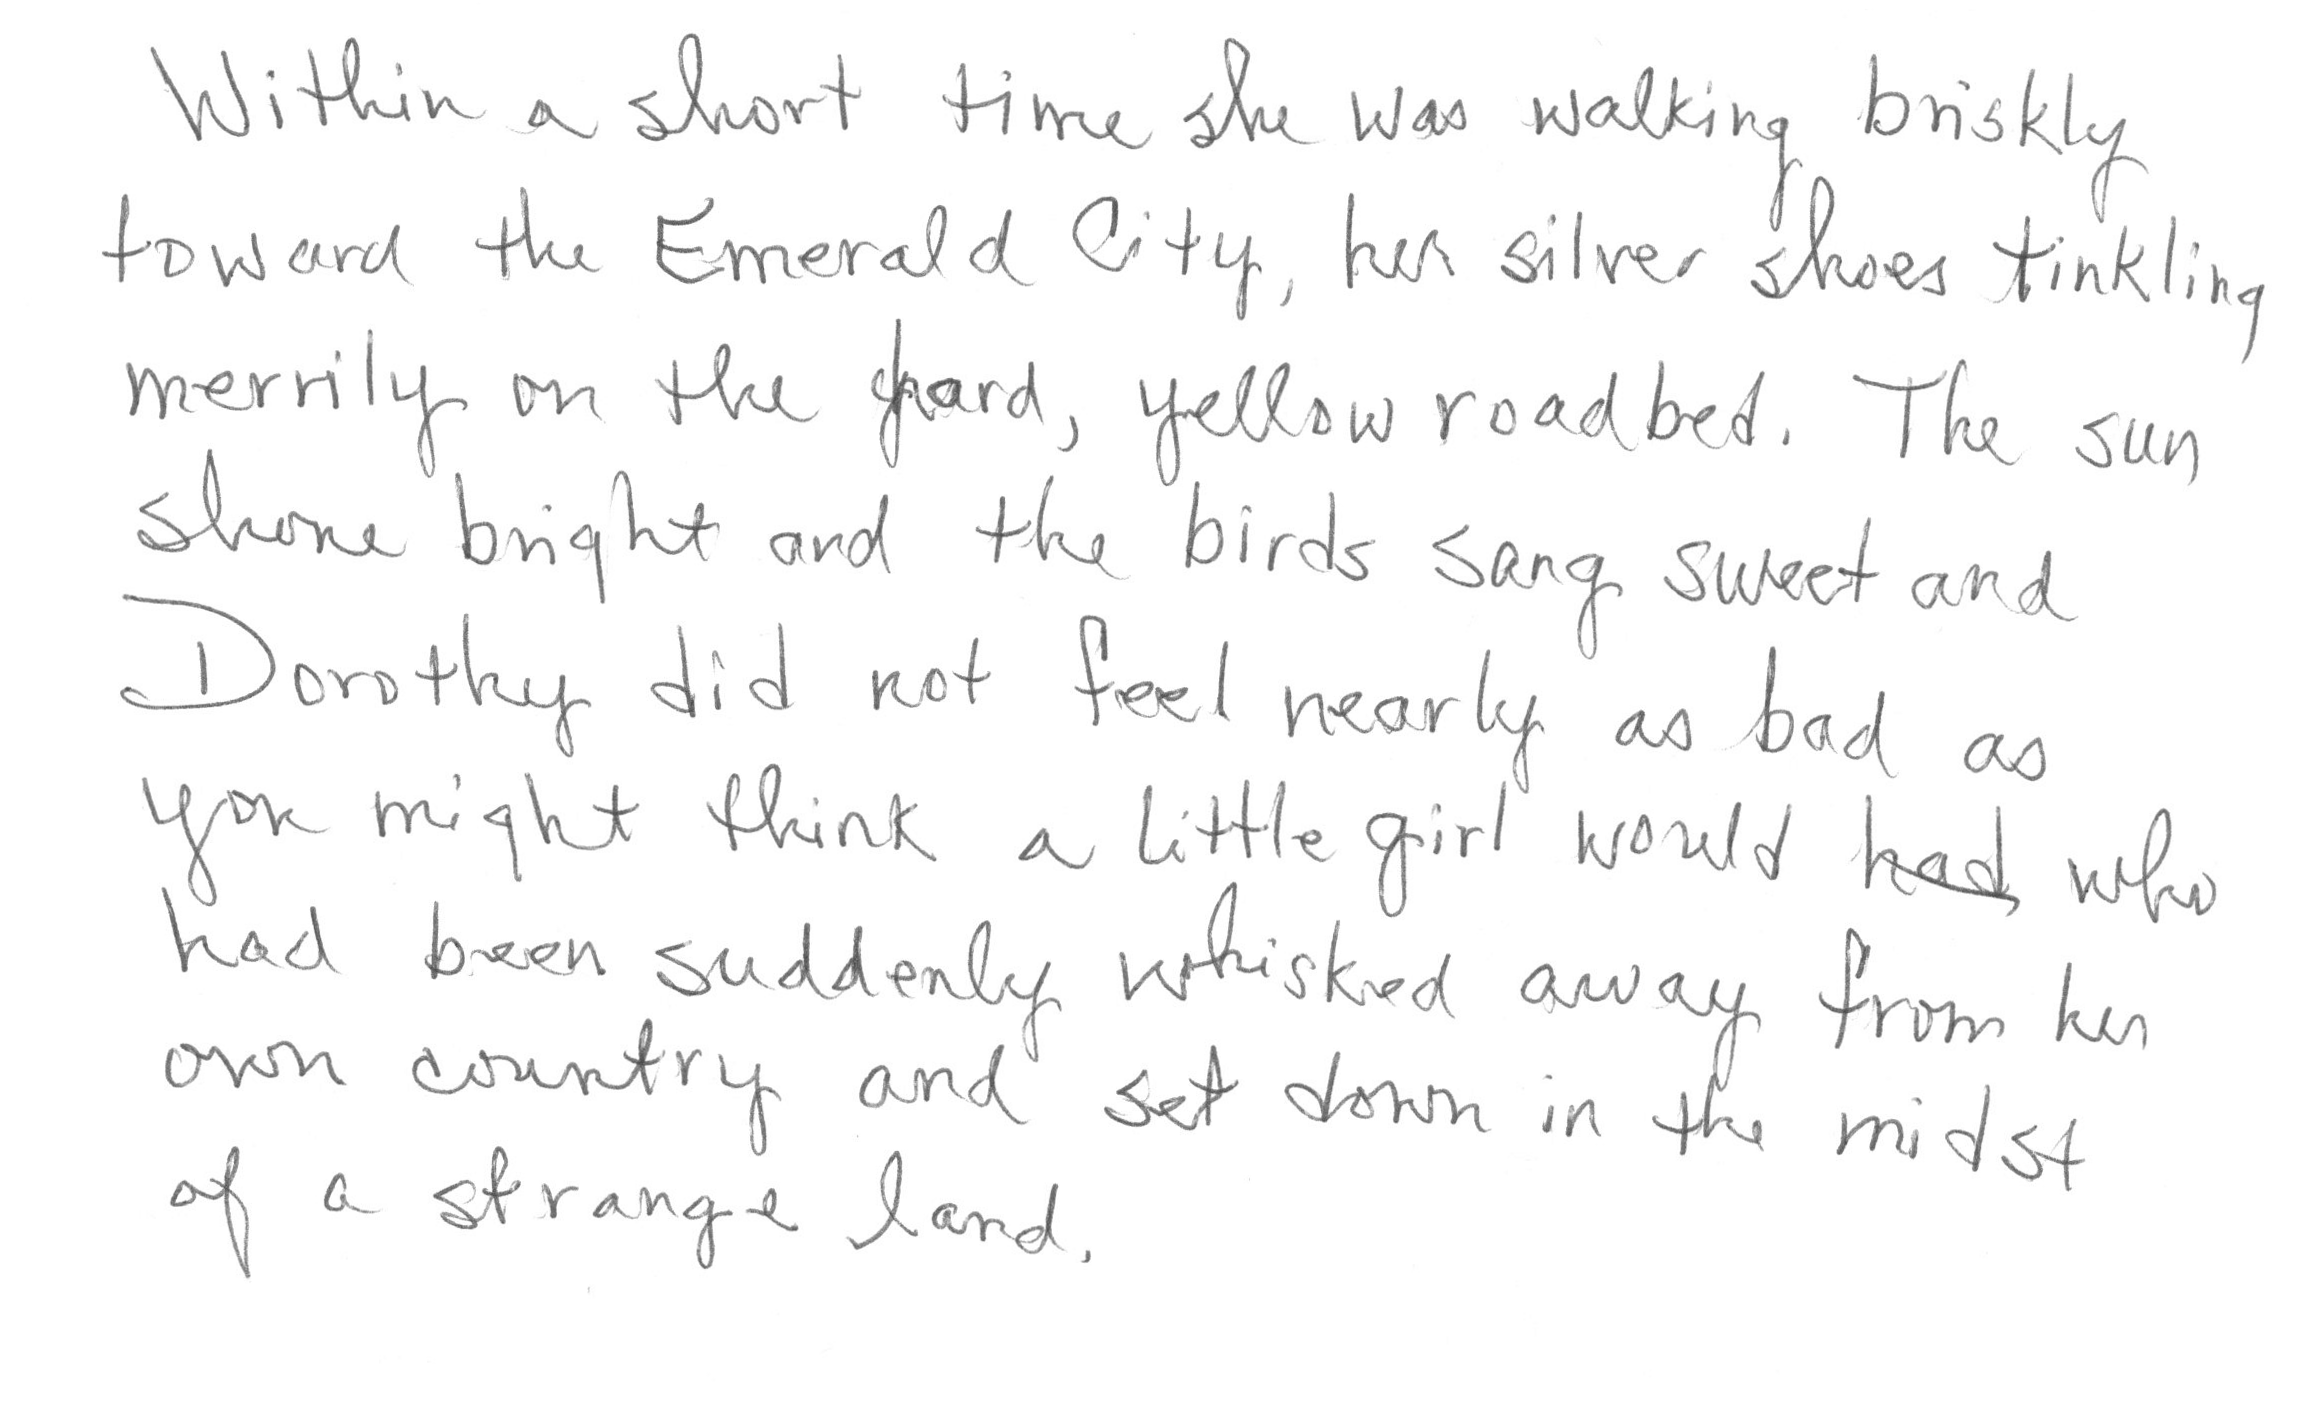 Within a short time she was walking briskly
toward the Emerald City, her silver shoes tinkling
merrily on the hard, yellow roadbed. The sun
shone bright and the birds sang sweet and
Dorothy did not feel nearly as bad as
you might think a little girl would had who
had been suddenly whisked away from her
own country and set down in the midst
of a strange land.